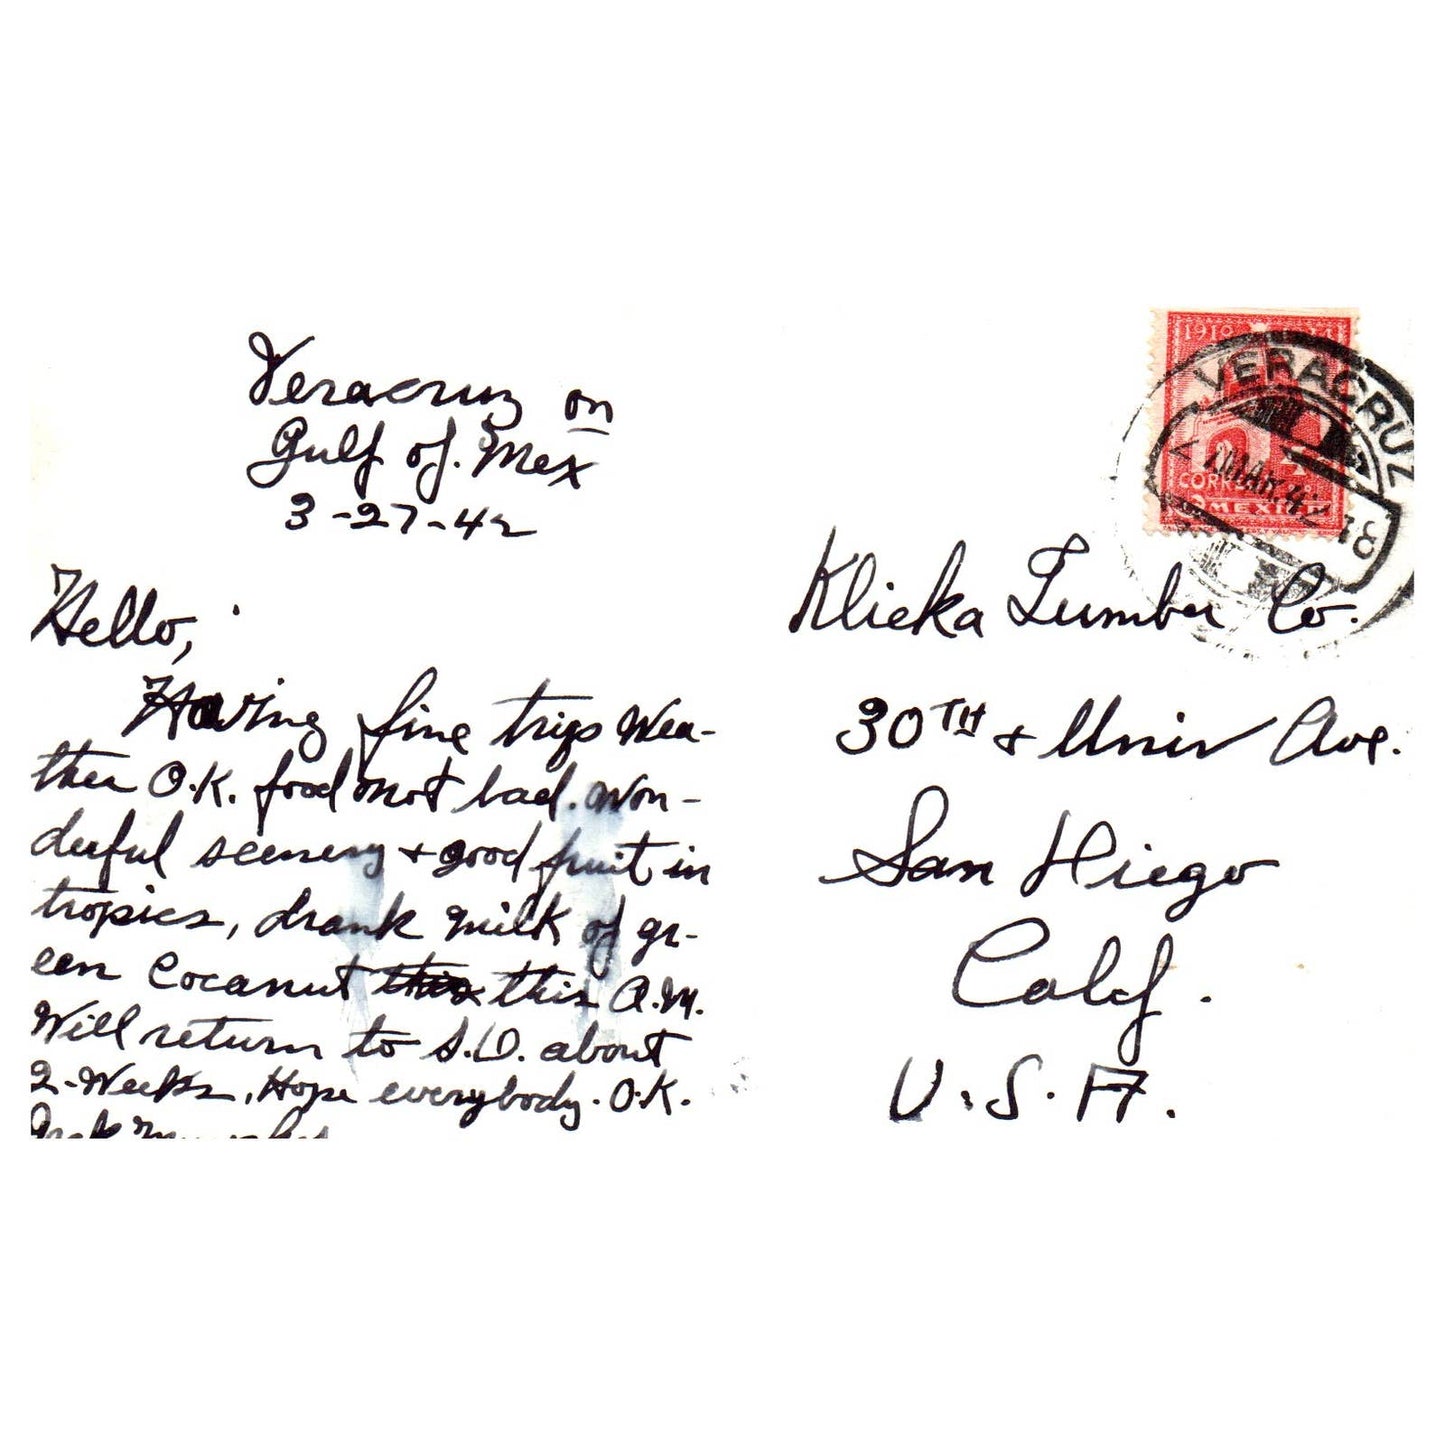 Veracruz on
Gulf of. Mex
3-27-42
Hello,
Having fine trip Wea-
ther O.K. food not bad. Won-
derful scenery + good fruit in
tropics, drank milk of gr-
een Cocanut this A.M.
Will return to S.D. about
2-Weeks, Hope everybody. O.K.
1910
VERACRUZ
MAR. 42
18
CORREOS
MEXICO
Klicka Lumber Co.
30TH + Univ Ave.
San Diego
Calif.
U.S.A.